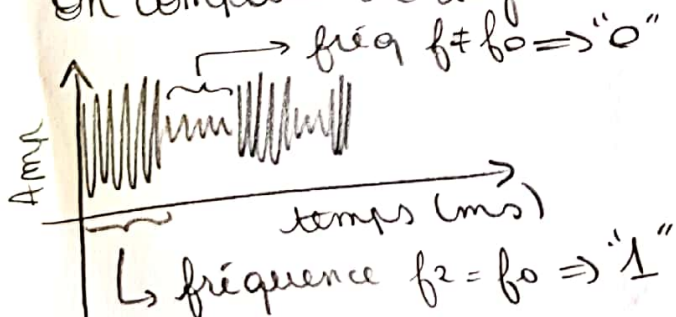 On
fréq f≠f0 => "0"
Amp
temps (ms)
fréquence f2 = f0 => "1"